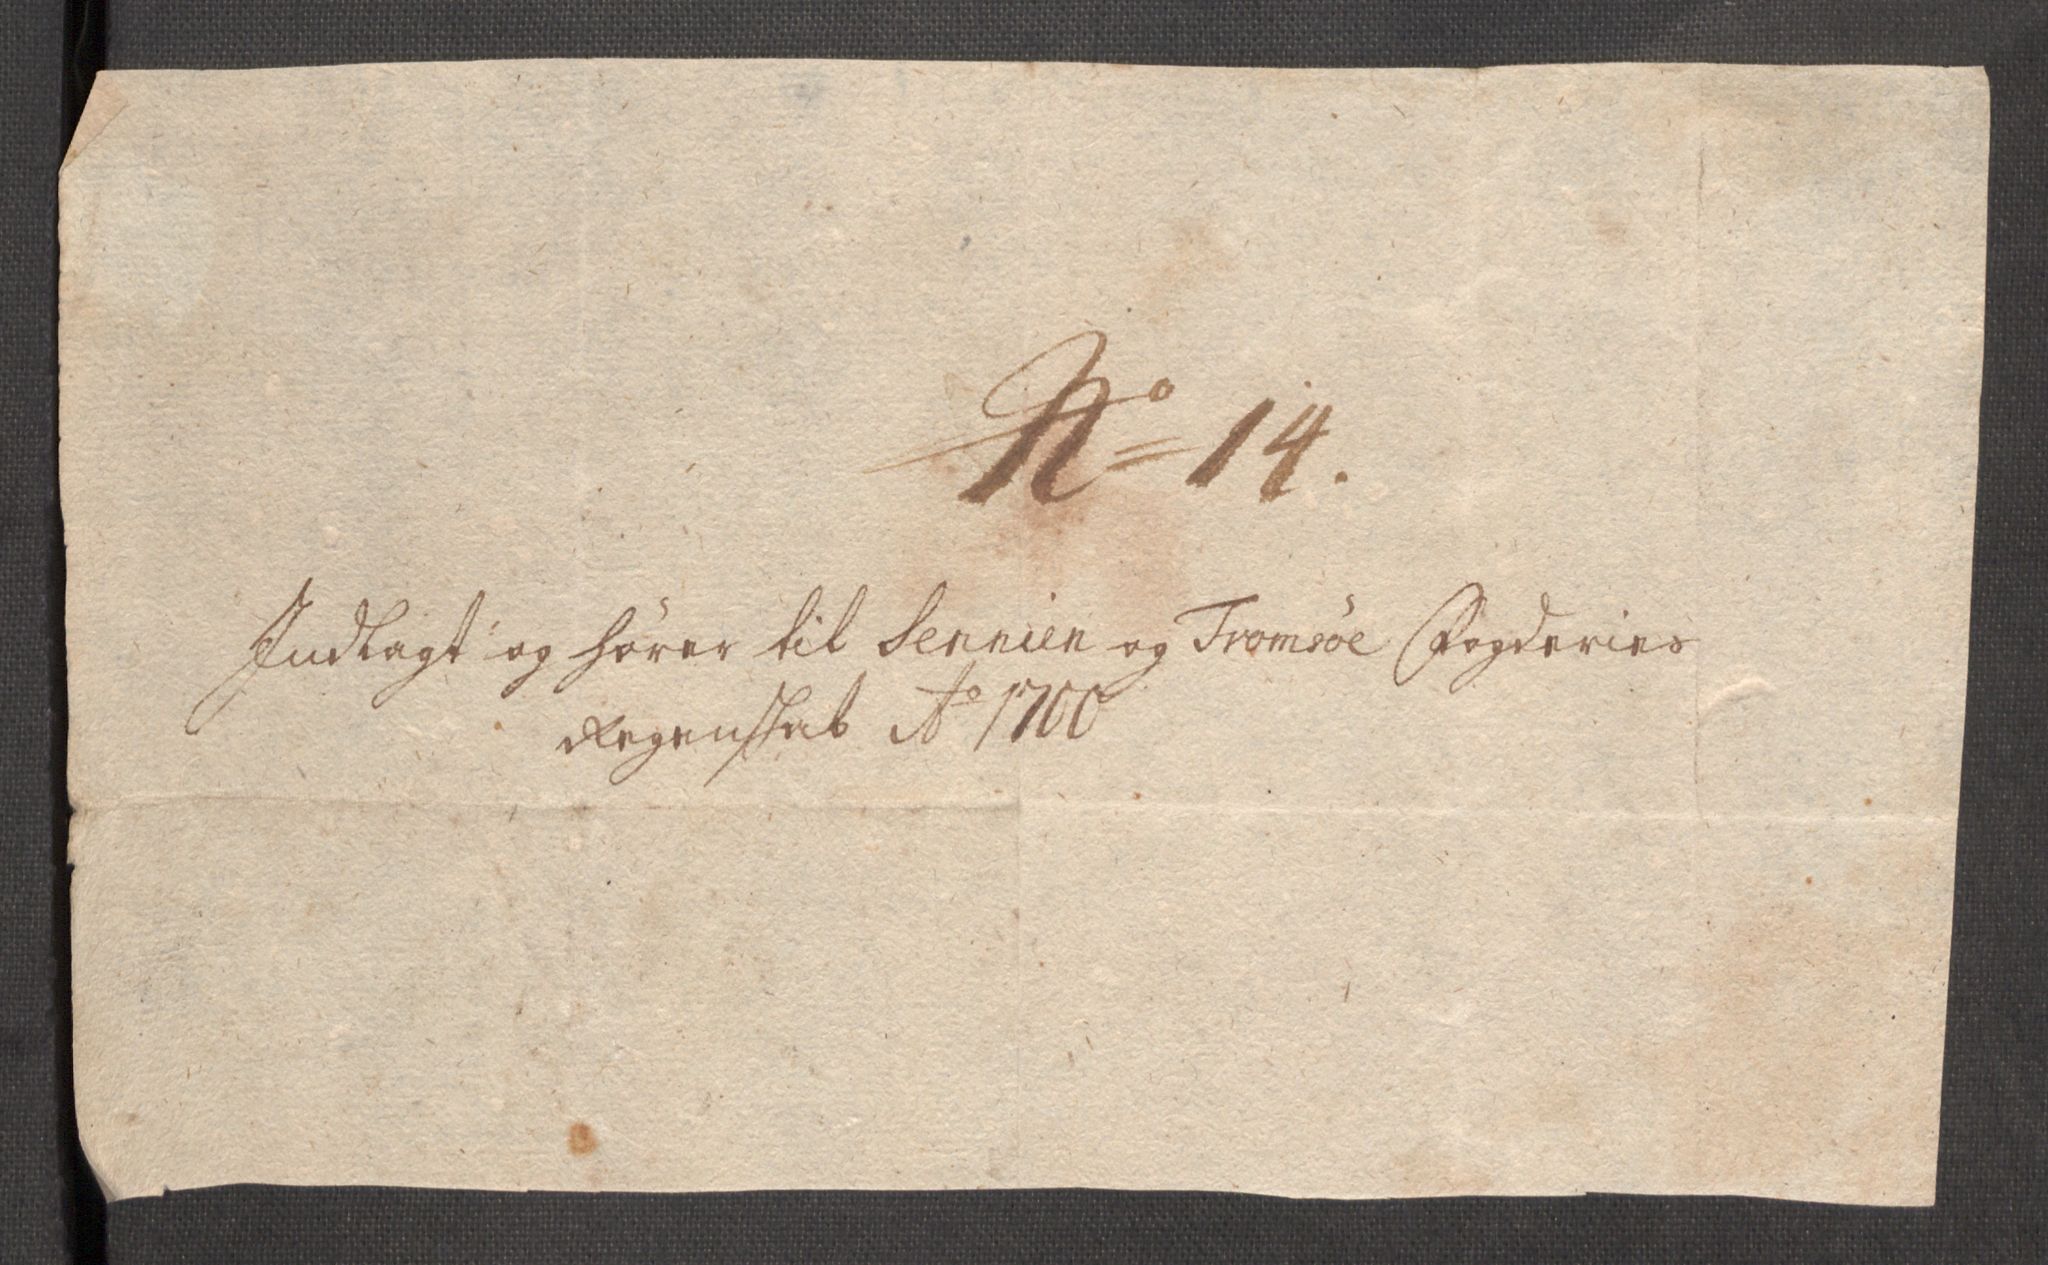 No 14.
Indlagt og hörer til Sennien og Tromsöe Fogderies
Regenskab Ao 1700